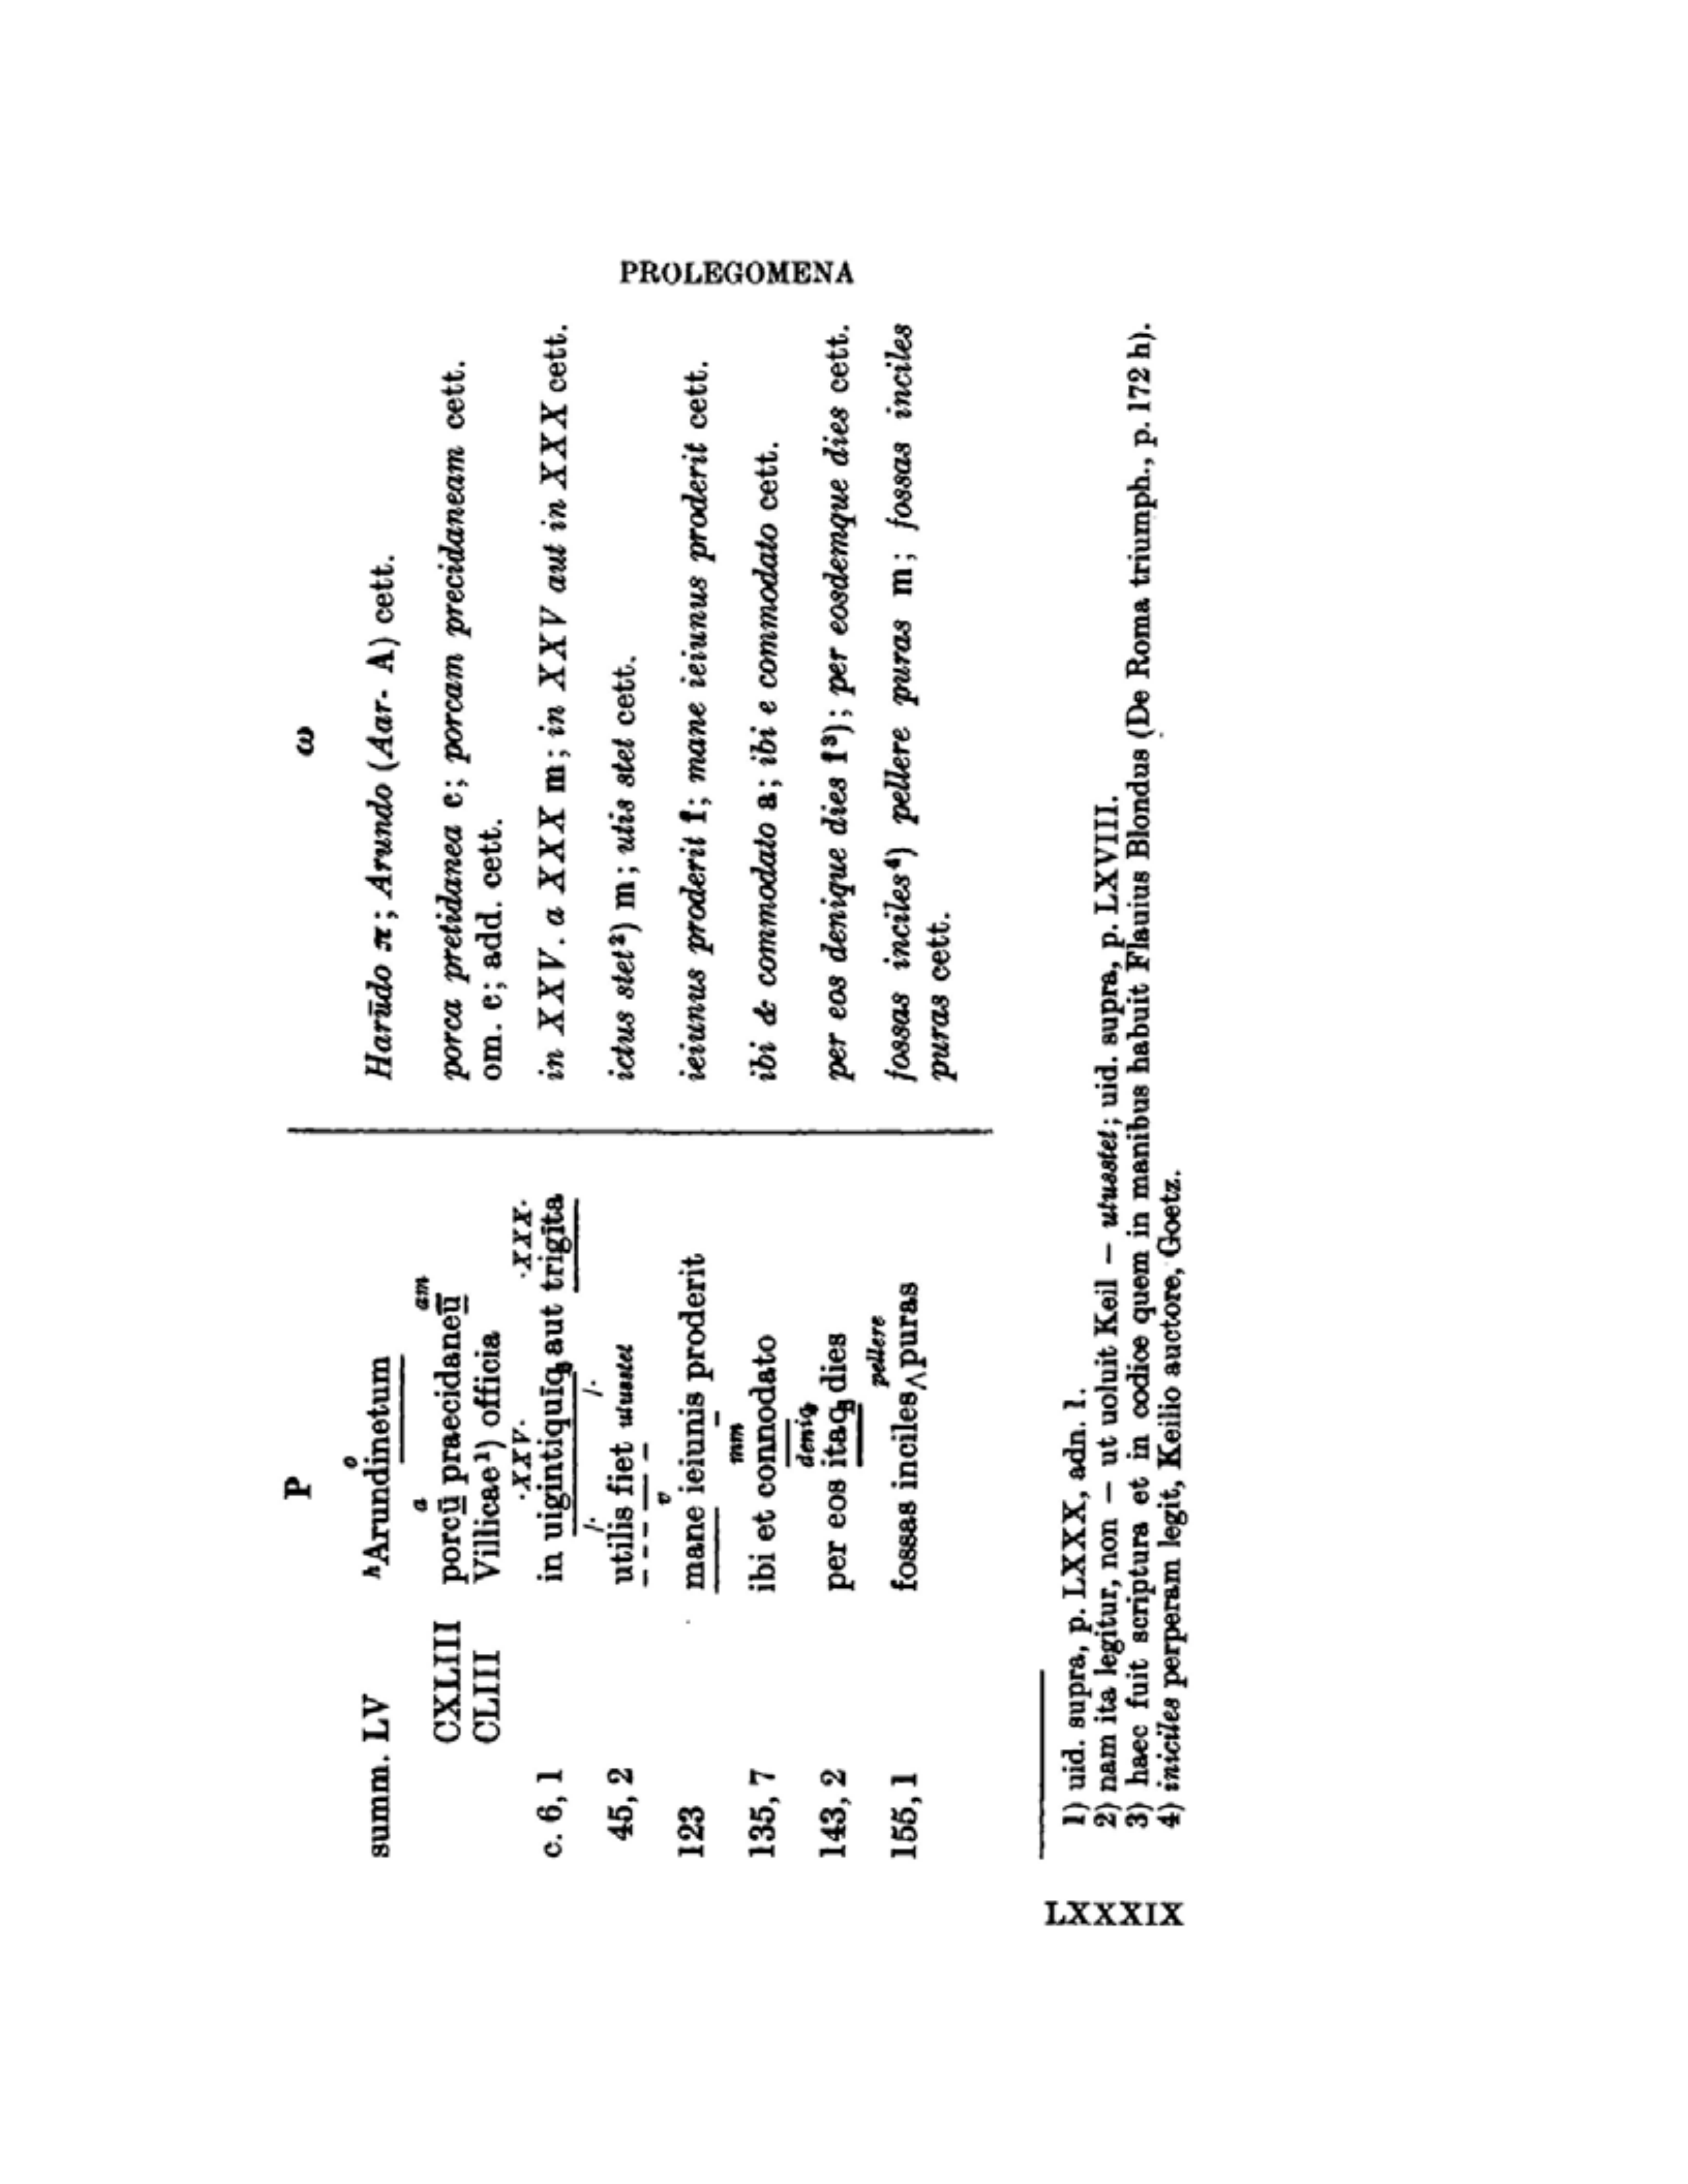 PROLEGOMENA
P
ω
summ. LV
ʰArundinetum
o
Harūdo π; Arundo (Aar- A) cett.
a
am
CXLIII
porcū praecidaneū
porca pretidanea c; porcam precidaneam cett.
CLIII
Villicae¹) officia
om. c; add. cett.
·XXV·
·XXX·
c. 6, 1
in uigintiquīq; aut trigīta
in XXV. a XXX m; in XXV aut in XXX cett.
/·
/·
45, 2
utilis fiet utusstet
ictus stet²) m; utis stet cett.
v
123
mane ieiunis proderit
ieiunus proderit f; mane ieiunus proderit cett.
mm
135, 7
ibi et connodato
ibi & commodato a; ibi e commodato cett.
deniq;
143, 2
per eos itaq; dies
per eos denique dies f³); per eosdemque dies cett.
pellere
155, 1
fossas inciles ‸ puras
fossas inciles⁴) pellere puras m; fossas inciles
puras cett.
1) uid. supra, p. LXXX, adn. 1.
2) nam ita legitur, non – ut uoluit Keil – utusstet; uid. supra, p. LXVIII.
3) haec fuit scriptura et in codice quem in manibus habuit Flauius Blondus (De Roma triumph., p. 172 h).
4) iniciles perperam legit, Keilio auctore, Goetz.
LXXXIX